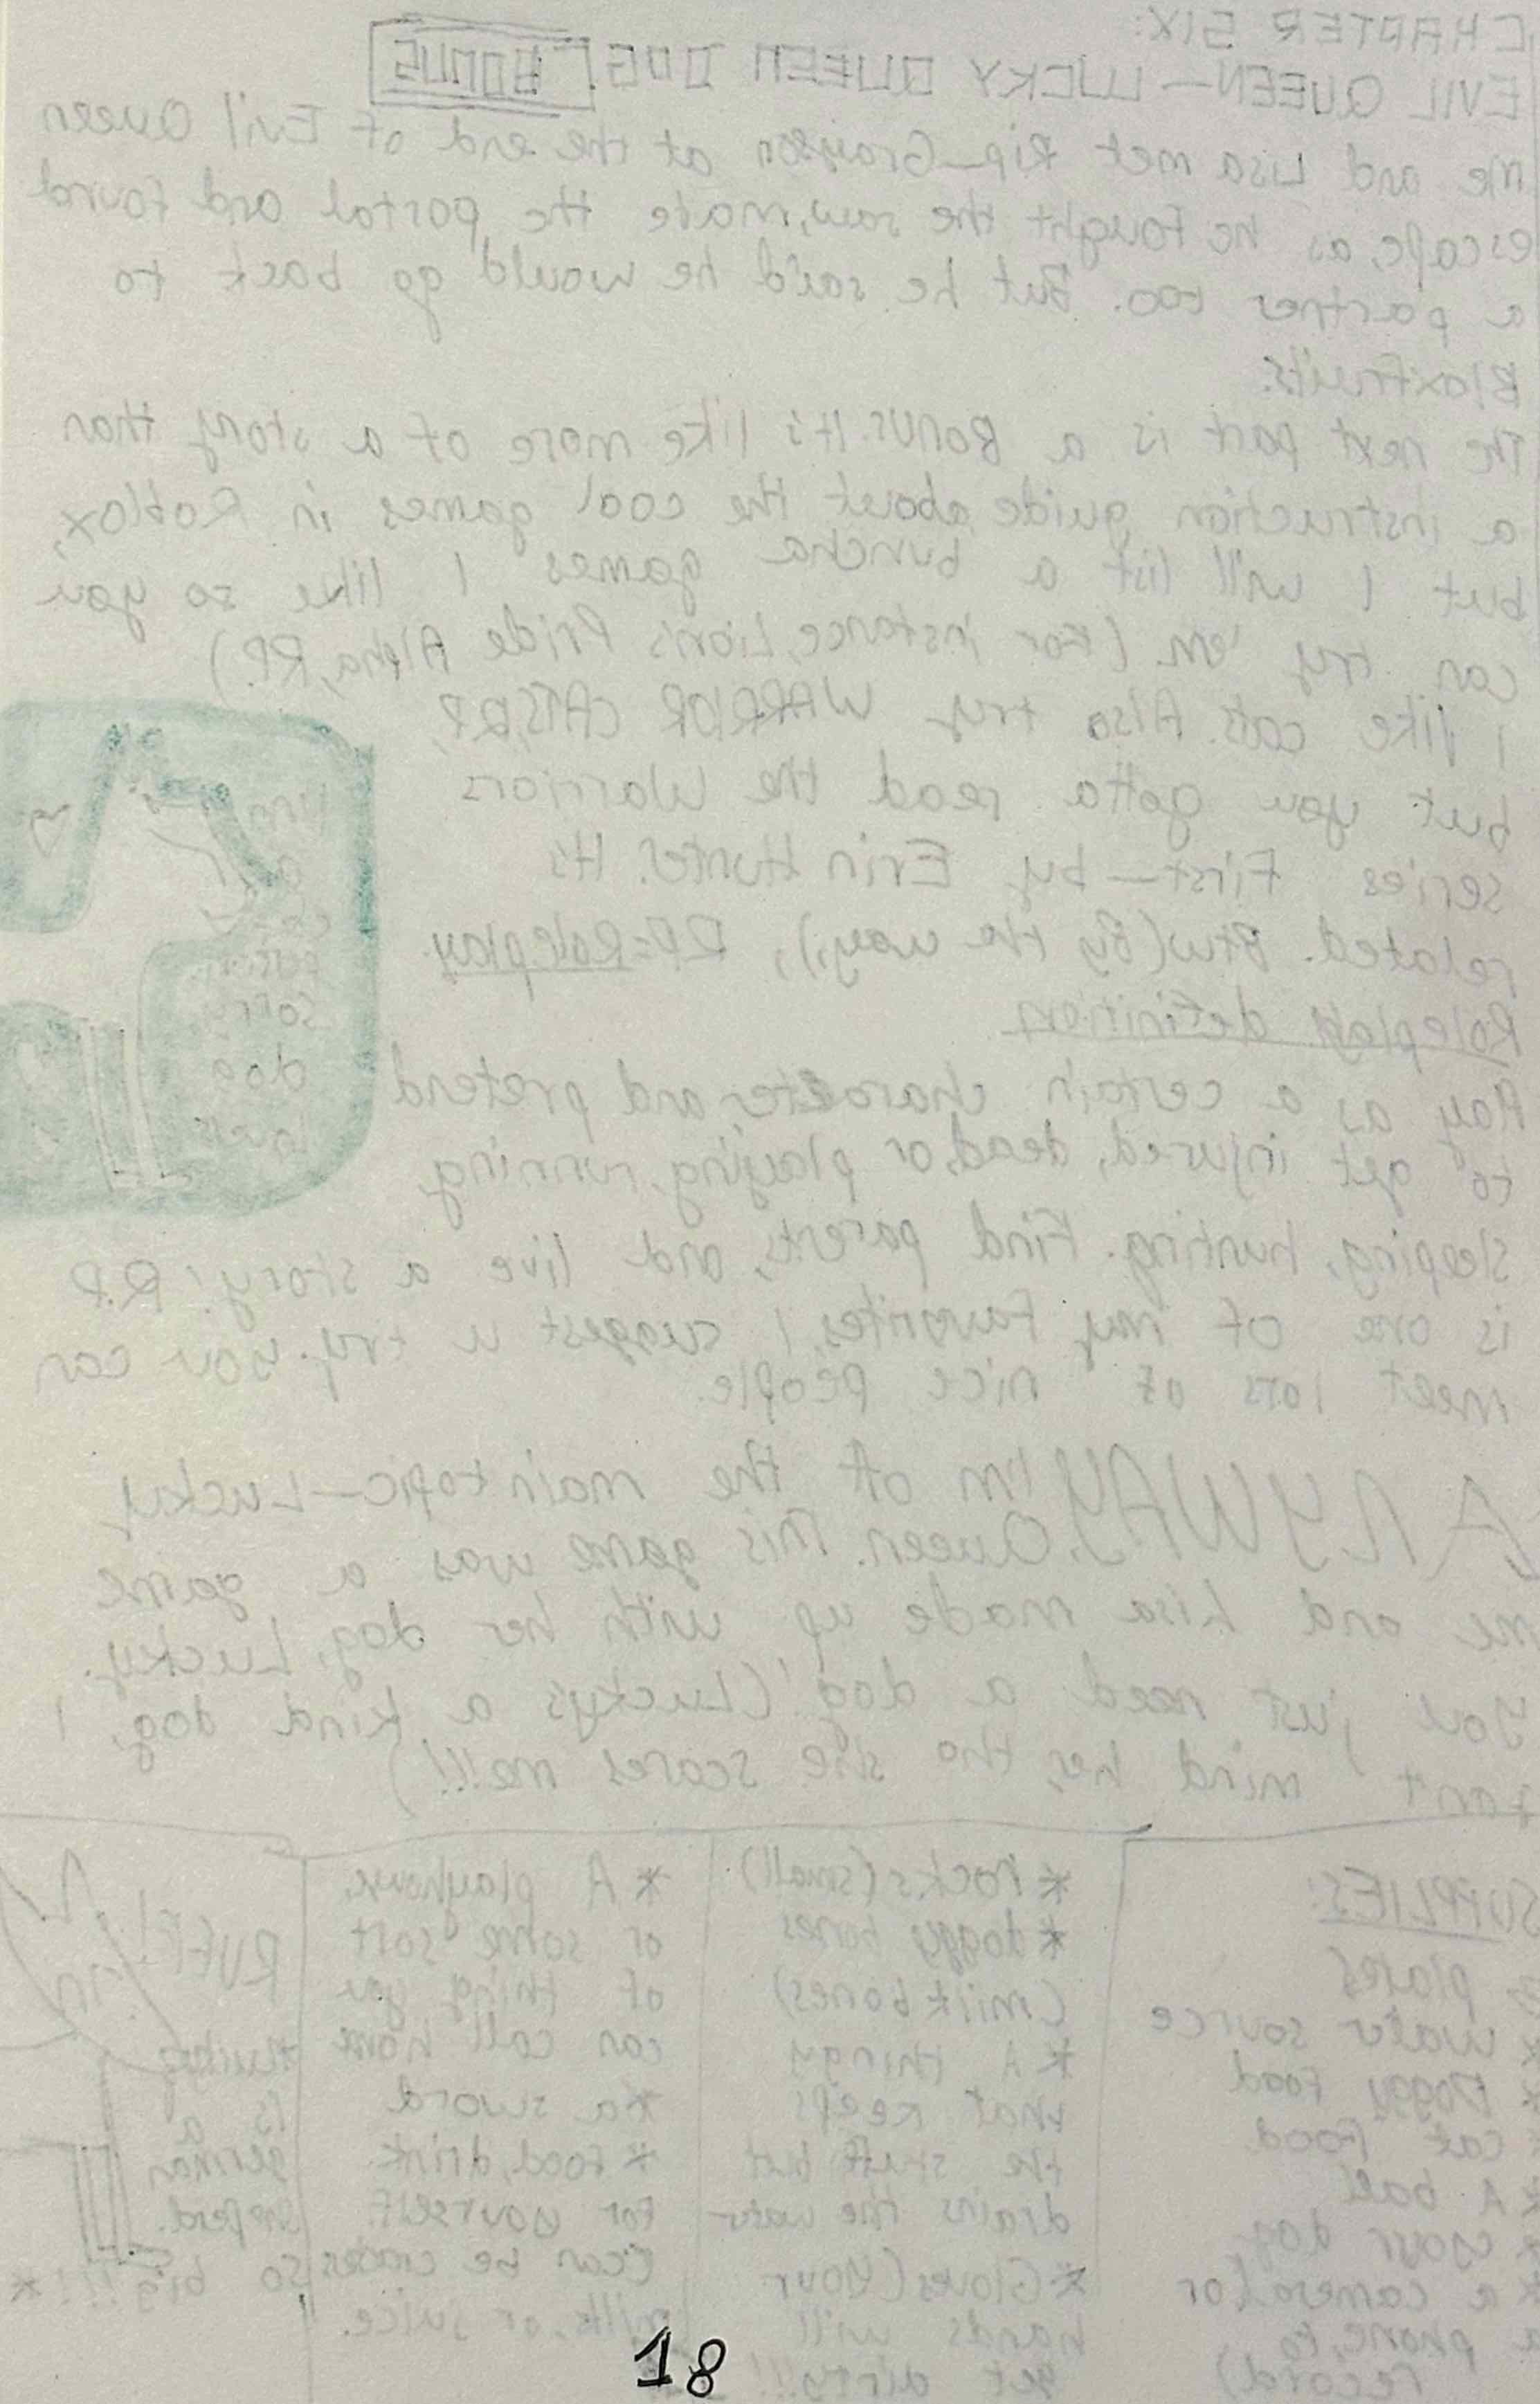 CHAPTER SIX:
EVIL QUEEN—LUCKY QUEEN DOG! BONUS
Me and Lisa met Rip_Grayson at the end of Evil Queen
escape, as he fought the saw, made the portal and found
a partner too. But he said he would go back to
Bloxfruits.
The next part is a BONUS. It's like more of a story than
a instruction guide, about the cool games in Roblox,
but I will list a buncha games I like so you
can try 'em. (For instance, Lion's Pride Alpha, RP.)
I like cats. Also try WARRIOR CATS, RP,
but you gotta read the Warriors
series First—by Erin Hunter. It's
related. Btw (By the way,), RP=Roleplay.
Roleplay definition
Play as a certain character, and pretend
to get injured, dead, or playing, running,
sleeping, hunting. Find parents, and live a story! R.P.
is one of my favorites, I suggest u try. You can
meet lots of nice people.
ANYWAY, I'm of the main topic—Lucky
Queen. This game was a game
me and Lisa made up with her dog, Lucky.
You just need a dog! (Lucky's a kind dog, I
don't mind her, tho she scares me!!!)
cat
person,
sorry
dog
lover
SUPPLIES:
plates
* water source
* Doggy Food
* cat Food
* A ball
* your dog
* a camera (or
a phone, to
record)
* rocks (small)
* doggy bones
(milkbones)
* A thingy
that keeps
the stuff but
drains the water
* Gloves (your
hands will
get dirty!!!
* A playhouse,
or some sort
of thing you
can call home
* a sword
* Food, drink
For yourself
(can be
milk, or juice.
RUFF!
is a
german
sheperd.
so big!!! *
18